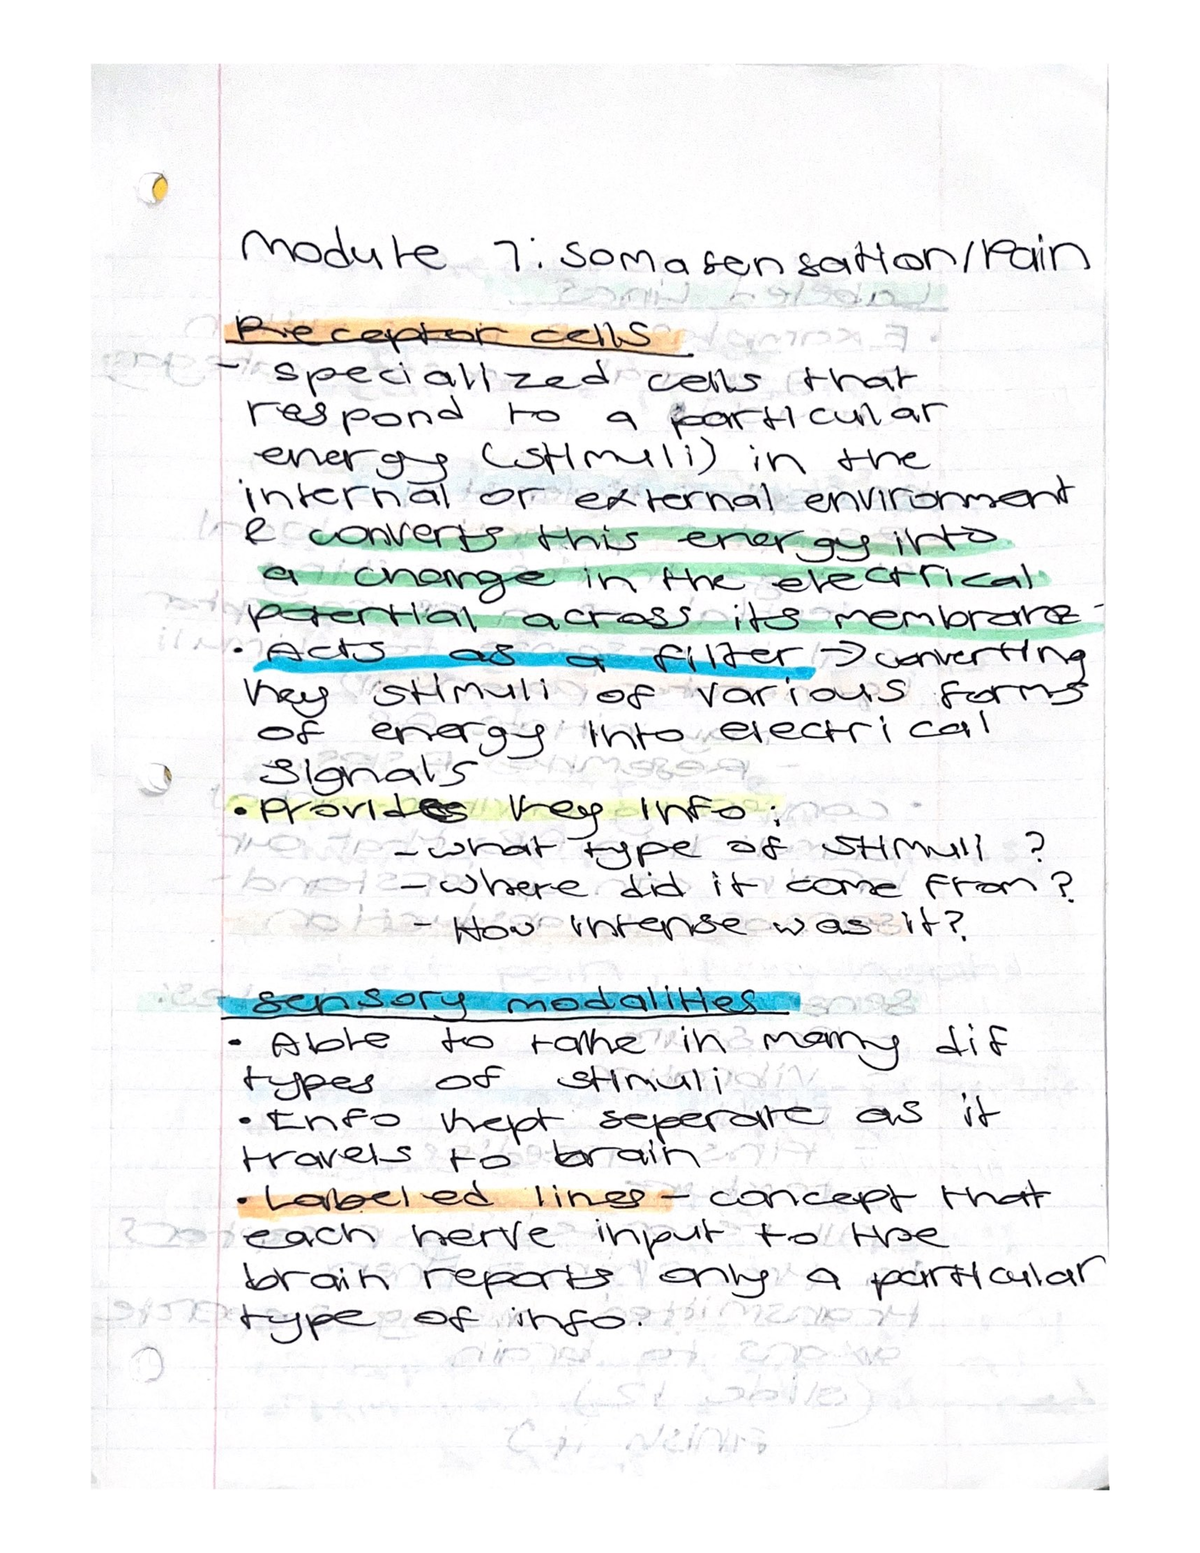 Module 7: Somasensation/Pain
Receptor cells
- specialized cells that
respond to a particular
energy (stimuli) in the
internal or external environment
& converts this energy into
a change in the electrical
potential across its membrane
• Acts as a filter → converting
key stimuli of various forms
of energy into electrical
signals
• Provides key info:
- what type of stimuli ?
- where did it come from ?
- How intense was it?
Sensory modalities
• Able to take in many dif
types of stimuli
• Info kept seperate as it
travels to brain
• Labeled lines - concept that
each nerve input to the
brain reports only a particular
type of info.